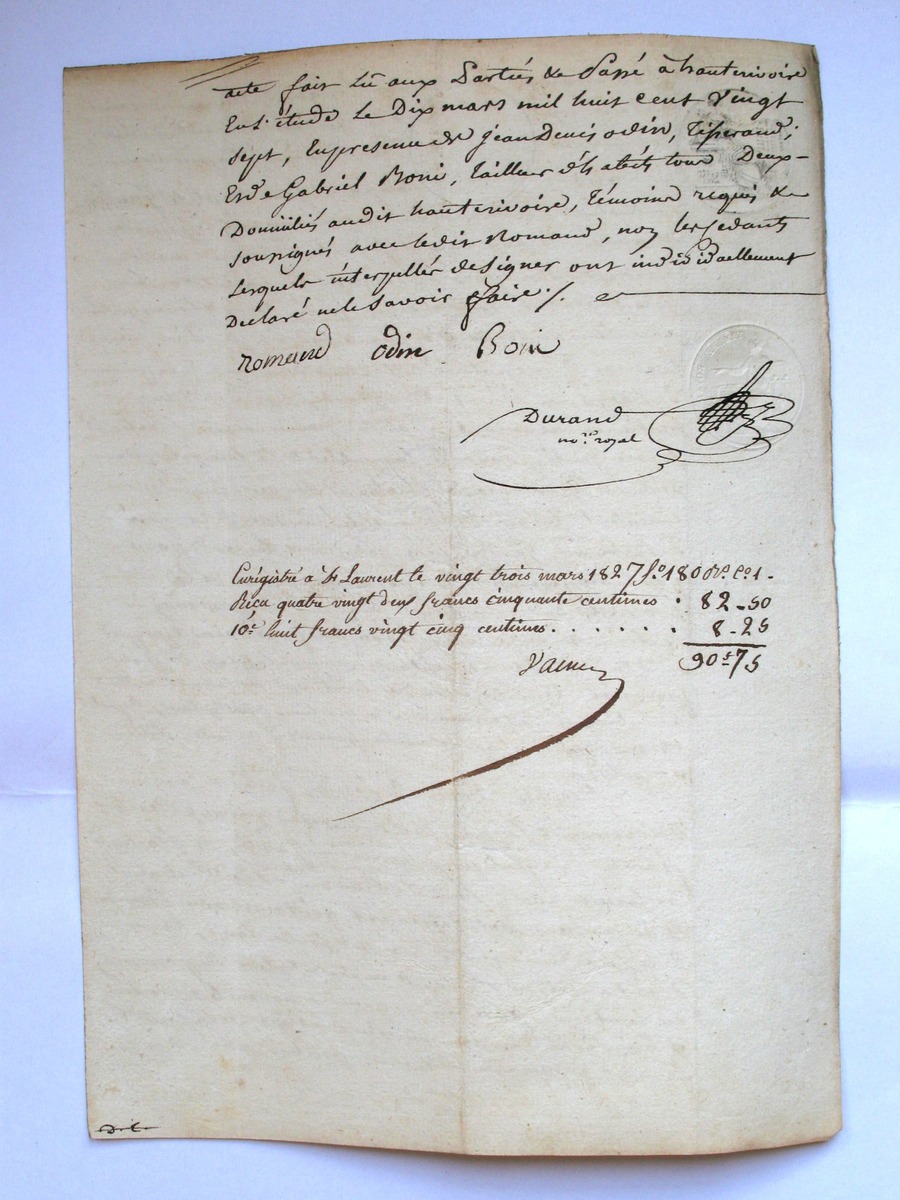 acte fait Lû aux Parties & Passé à hauterivoire
En l'étude Le Dix mars mil huit cent vingt
sept, En presence de jean Denis odin, Tisserand,
Et de Gabriel Boni, Tailleur d'habits tous Deux-
Domiciliés audit hauterivoire, Témoins requis &
soussignés avec ledit Romand, non les cedants
Lesquels interpellés de signer ont individuellement
Déclaré ne le savoir faire ./.
Romand odin Boni
Durand
no.re royal
Enrégistré à St Laurent le vingt trois mars 1827 fo. 180 Ro. Co. 1.
Reçu quatre vingt deux francs cinquante centimes . 82-50
10e. huit francs vingt cinq centimes. . . . . . . 8-25
90f75